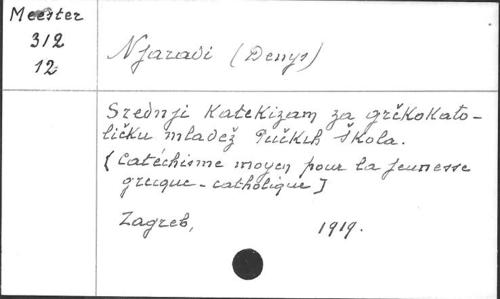 Meester
312
12
Njaradi (Denys)
Srednji Katekizam za grčkokato-
ličku mladež pučkih škola.
[Catéchisme moyen pour la jeunesse
grecque-catholique]
Zagreb, 1919.